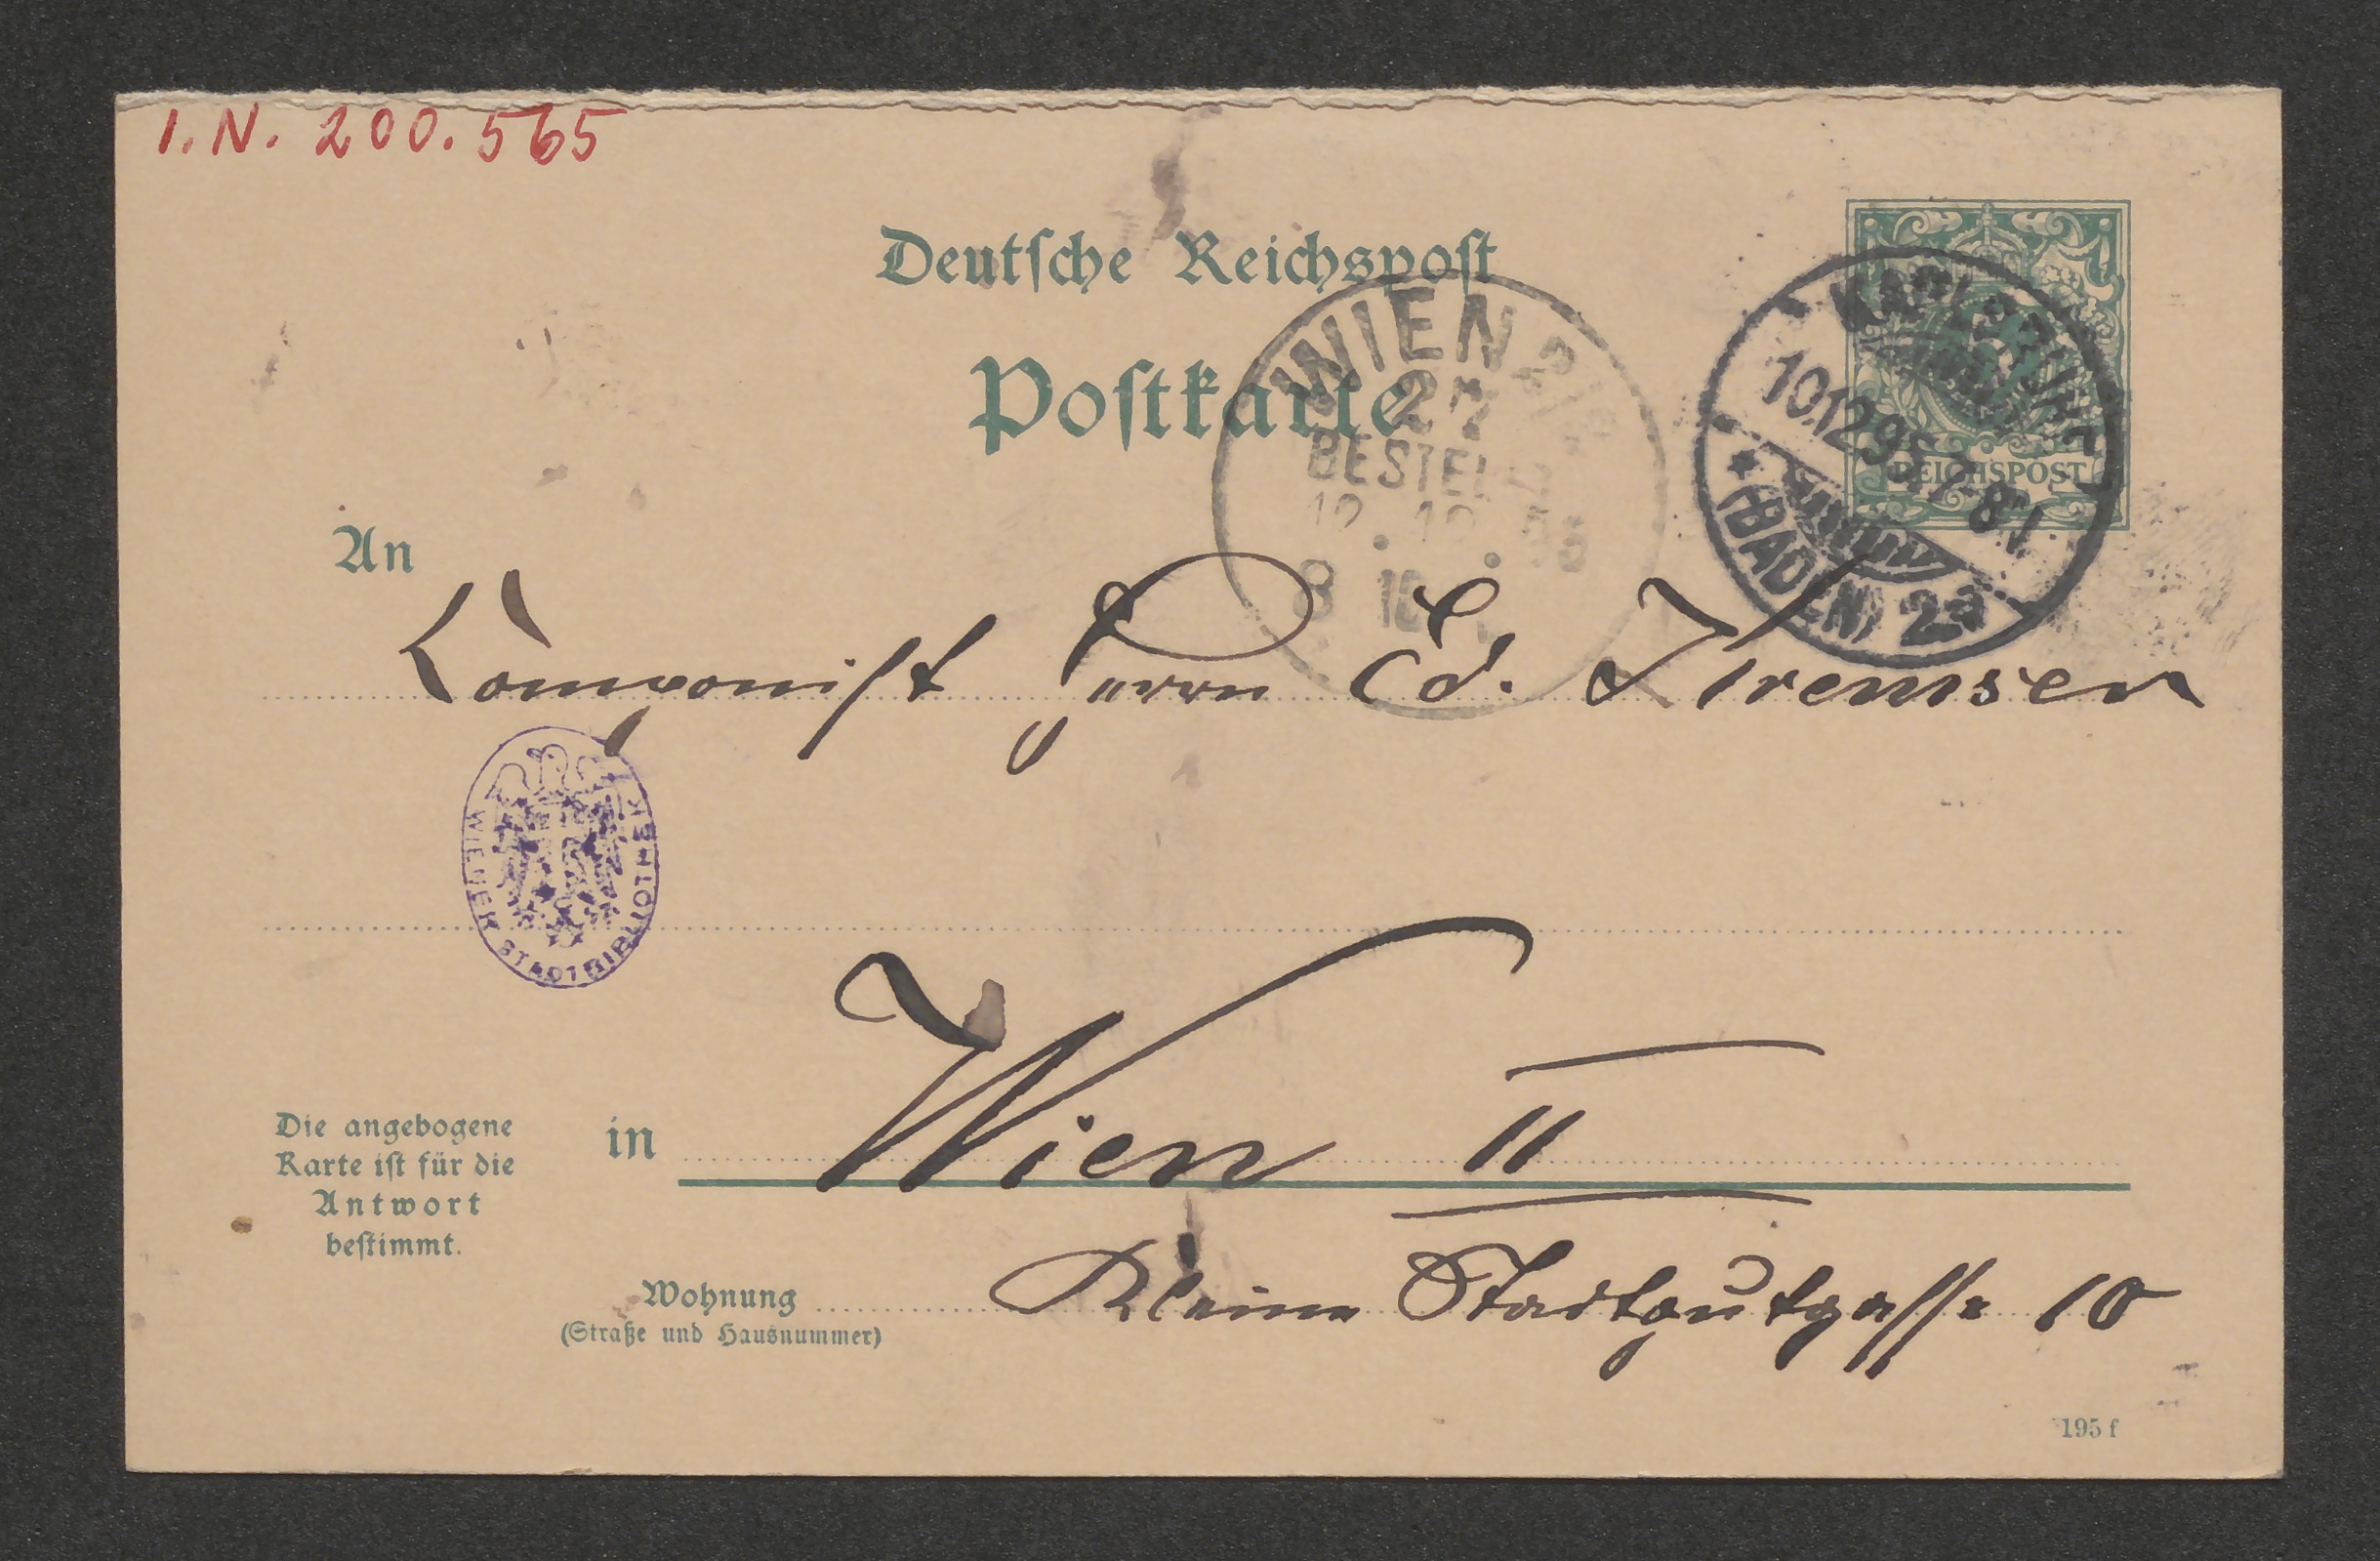 I.N. 200.565
Deutsche Reichspost
Postkarte
WIEN 2/
27
BESTEL
12. 12.
8
KARLSRUHE
10.12.95 7-8N.
(BADEN) 2a
REICHSPOST
An
Componist Herrn Ed. Kremser
WIENER STADTBIBLIOTHEK
in Wien II
Die angebogene
Karte ist für die
Antwort
bestimmt.
Wohnung Kleine Stadtgutgasse 10
(Straße und Hausnummer)
195 f